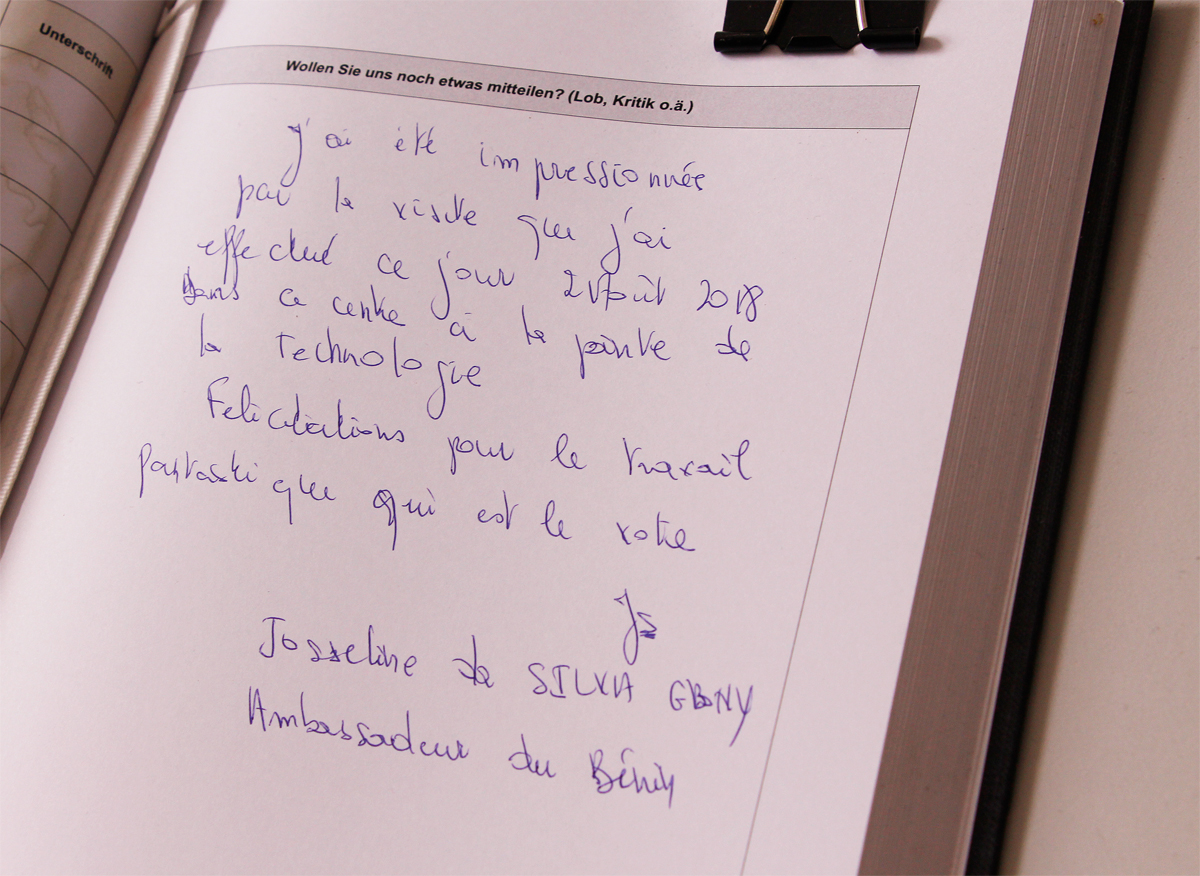 Unterschrift
Wollen Sie uns noch etwas mitteilen? (Lob, Kritik o.ä.)
j'ai été impressionnée
par la visite que j'ai
effectué ce jour 21 Août 2018
Dans ce centre à la pointe de
la technologie
Felicitations pour le travail
fantastique qui est le votre
JS
Josseline da SILVA GBONY
Ambassadeur du Bénin